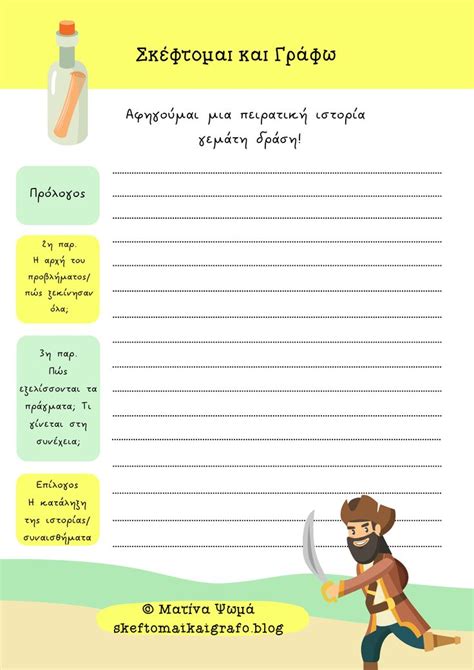 Σκέφτομαι και Γράφω
Αφηγούμαι μια πειρατική ιστορία
γεμάτη δράση!
Πρόλογος
2η παρ.
Η αρχή του
προβλήματος/
πώς ξεκίνησαν
όλα;
3η παρ.
Πώς
εξελίσσονται τα
πράγματα; Τι
γίνεται στη
συνέχεια;
Επίλογος
Η κατάληξη
της ιστορίας/
συναισθήματα
© Ματίνα Ψωμά
skeftomaikaigrafo.blog